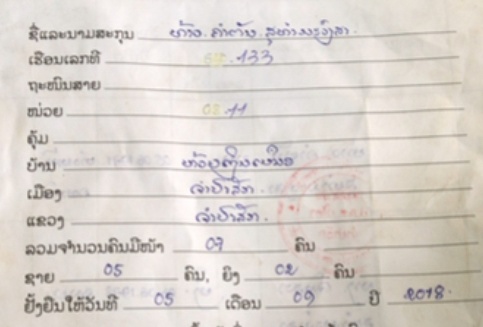 ຊື່ແລະນາມສະກຸນ ທ້າວ. ຄໍາຕັນ.
ເຮືອນເລກທີ 133
ຖະໜົນສາຍ
ໜ່ວຍ 08.11
ຄຸ້ມ
ບ້ານ
ເມືອງ ຈໍາປາສັກ.
ແຂວງ ຈໍາປາສັກ.
ລວມຈໍານວນຄົນມີໜ້າ 07 ຄົນ
ຊາຍ 05 ຄົນ, ຍິງ 02 ຄົນ
ຢັ້ງຢືນໃຫ້ວັນທີ 05 ເດືອນ 09 ປີ 2018.